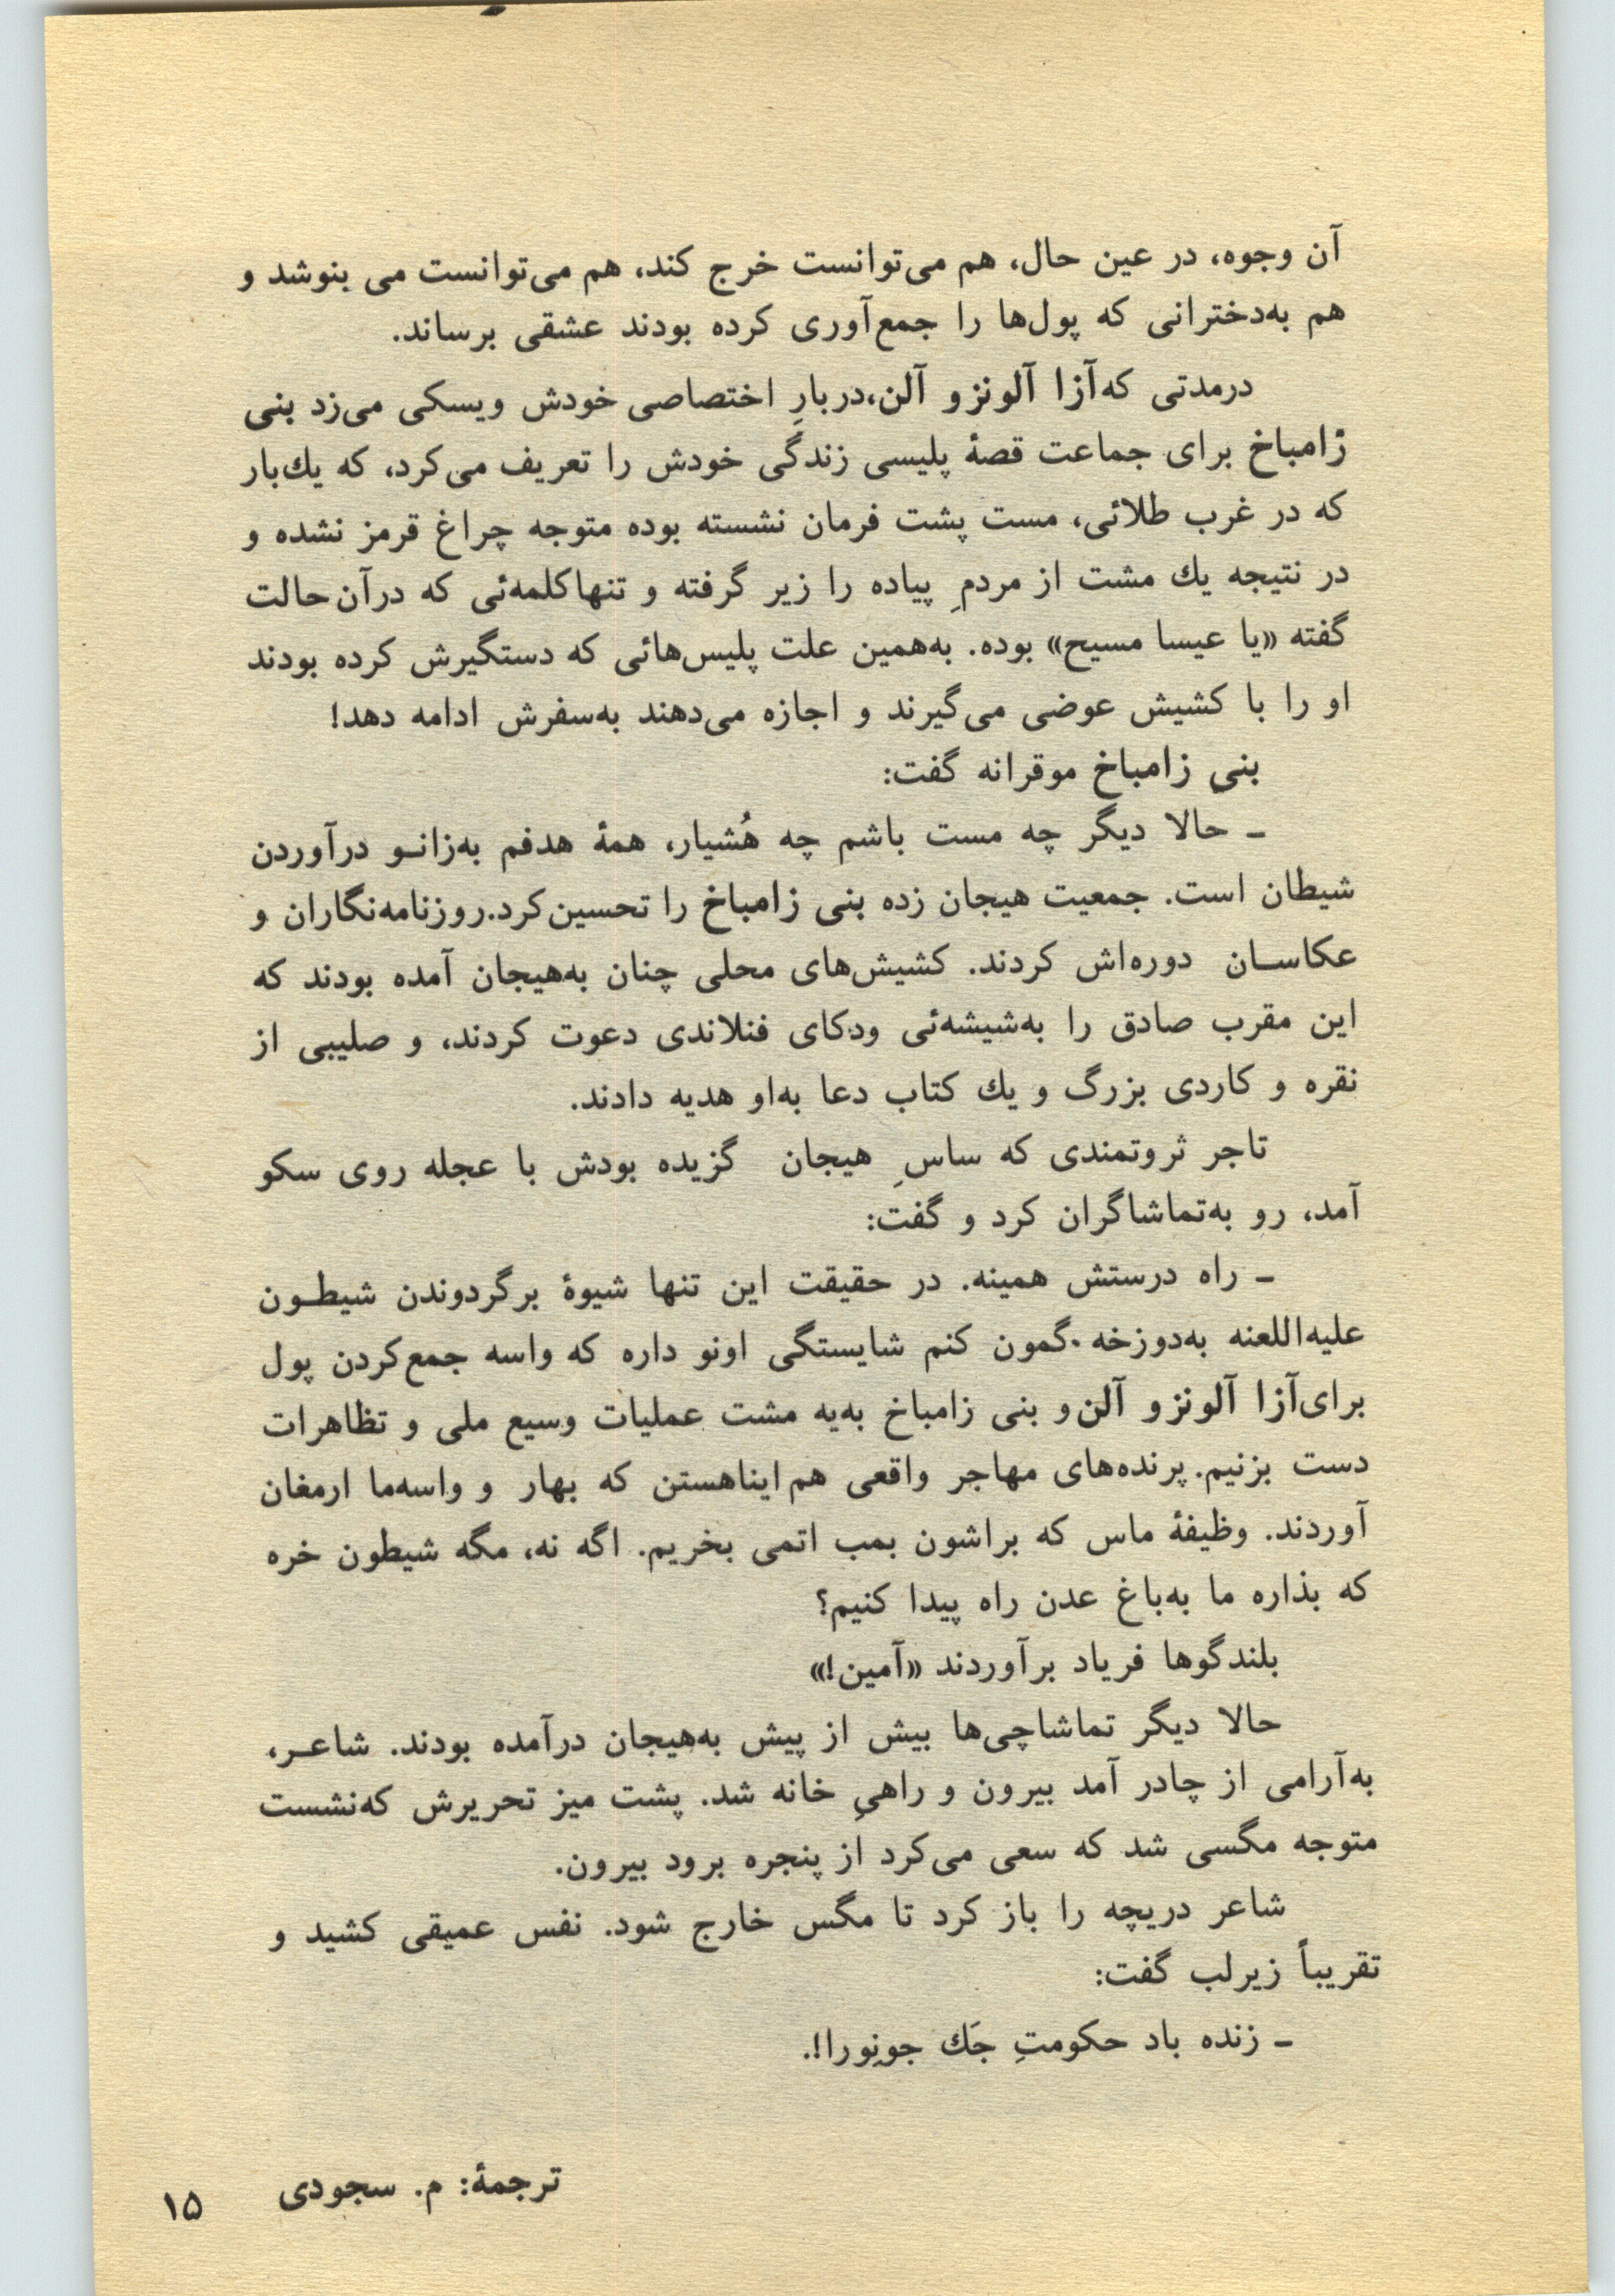 آن وجوه، در عین حال، هم می‌توانست خرج کند، هم می‌توانست می بنوشد و
هم به‌دخترانی که پول‌ها را جمع‌آوری کرده بودند عشقی برساند.
درمدتی که‌آزا آلونزو آلن،دربارِ اختصاصی خودش ویسکی می‌زد بنی
زامباخ برای جماعت قصهٔ پلیسی زندگی خودش را تعریف می‌کرد، که یك‌بار
که در غرب طلائی، مست پشت فرمان نشسته بوده متوجه چراغ قرمز نشده و
در نتیجه یك مشت از مردمِ پیاده را زیر گرفته و تنهاکلمه‌ئی که درآن‌حالت
گفته «یا عیسا مسیح» بوده. به‌همین علت پلیس‌هائی که دستگیرش کرده بودند
او را با کشیش عوضی می‌گیرند و اجازه می‌دهند به‌سفرش ادامه دهد!
بنیِ زامباخ موقرانه گفت:
ـ حالا دیگر چه مست باشم چه هُشیار، همهٔ هدفم به‌زانـو درآوردن
شیطان است. جمعیت هیجان زده بنی زامباخ را تحسین‌کرد.روزنامه‌نگاران و
عکاسـان دوره‌اش کردند. کشیش‌های محلی چنان به‌هیجان آمده بودند که
این مقرب صادق را به‌شیشه‌ئی ودکای فنلاندی دعوت کردند، و صلیبی از
نقره و کاردی بزرگ و یك کتاب دعا به‌او هدیه دادند.
تاجر ثروتمندی که ساسِ هیجان گزیده بودش با عجله روی سکو
آمد، رو به‌تماشاگران کرد و گفت:
ـ راه درستش همینه. در حقیقت این تنها شیوهٔ برگردوندن شیطـون
علیه‌اللعنه به‌دوزخه.گمون کنم شایستگی اونو داره که واسه جمع‌کردن پول
برای‌آزا آلونزو آلن‌و بنی زامباخ به‌یه مشت عملیات وسیع ملی و تظاهرات
دست بزنیم. پرنده‌های مهاجر واقعی هم‌ایناهستن که بهار و واسه‌ما ارمغان
آوردند. وظیفهٔ ماس که براشون بمب اتمی بخریم. اگه نه، مگه شیطون خره
که بذاره ما به‌باغ عدن راه پیدا کنیم؟
بلندگوها فریاد برآوردند «آمین!»
حالا دیگر تماشاچی‌ها بیش از پیش به‌هیجان درآمده بودند. شاعـر،
به‌آرامی از چادر آمد بیرون و راهیِ خانه شد. پشت میز تحریرش که‌نشست
متوجه مگسی شد که سعی می‌کرد از پنجره برود بیرون.
شاعر دریچه را باز کرد تا مگس خارج شود. نفس عمیقی کشید و
تقریباً زیرلب گفت:
ـ زنده باد حکومتِ جَك جونِورا!.
ترجمهٔ: م. سجودی
۱۵